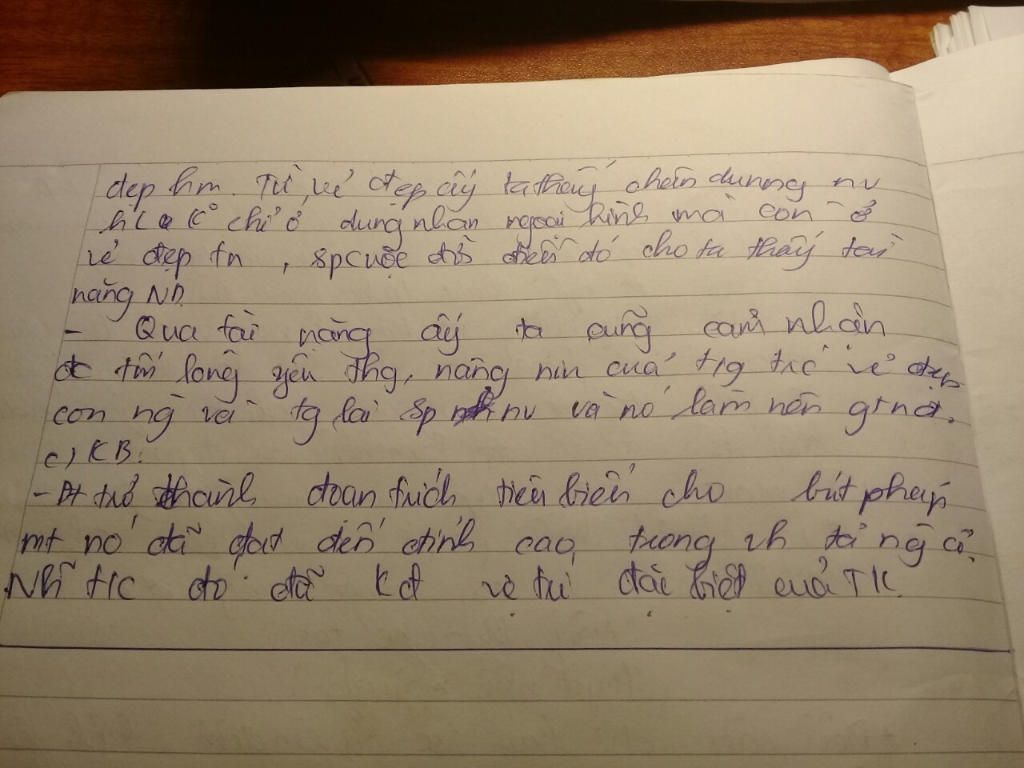 đẹp hm. Từ vẻ đẹp ấy ta thấy chân dung nv
k° chỉ ở dung nhan ngoại hình mà còn ở
vẻ đẹp tn, đó cho ta thấy tài
năng ND.
- Qua tài năng ấy ta cũng cảm nhận
đc tấm lòng yêu thg, nâng niu của t/g trc vẻ đẹp
con ng và tg lai sp nv và nó làm nên gt nđ.
c) KB:
- Đt trở thành đoạn trích tiêu biểu cho bút pháp
mt nó đã đạt đến đỉnh cao trong vh tả ng cổ.
đó đã kđ vị trí đặc biệt của TK.